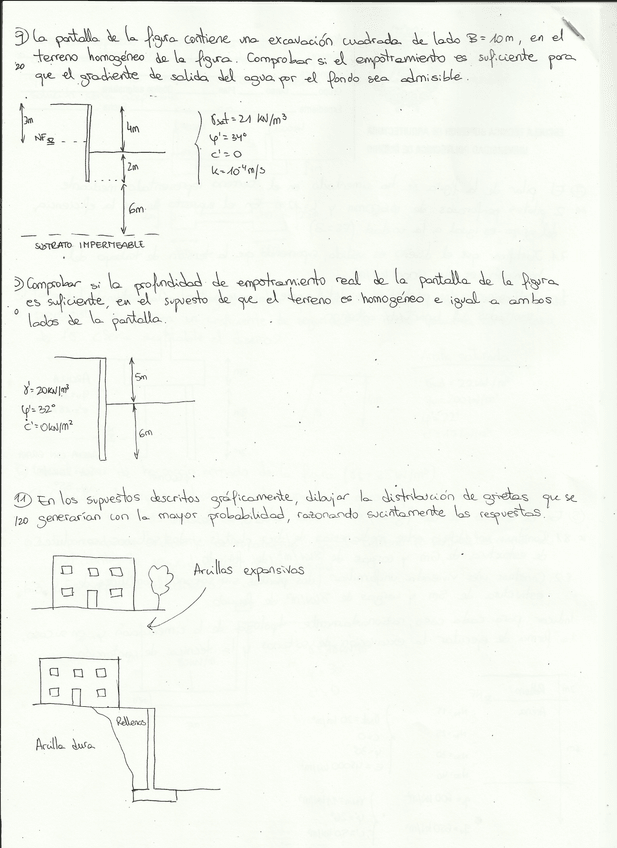 9) La pantalla de la figura contiene una excavación cuadrada de lado B=10m, en el
/20 terreno homogéneo de la figura. Comprobar si el empotramiento es suficiente para
que el gradiente de salida del agua por el fondo sea admisible.
3m
NF
4m
2m
6m
γsat = 21 kN/m³
φ' = 34°
c' = 0
k = 10⁻⁴ m/s
SUSTRATO IMPERMEABLE
) Comprobar si la profundidad de empotramiento real de la pantalla de la figura
es suficiente, en el supuesto de que el terreno es homogéneo e igual a ambos
lados de la pantalla.
γ' = 20 kN/m³
φ' = 32°
c' = 0 kN/m²
5m
6m
11) En los supuestos descritos gráficamente, dibujar la distribución de grietas que se
/20 generarían con la mayor probabilidad, razonando sucintamente las respuestas.
Arcillas expansivas
Rellenos
Arcilla dura